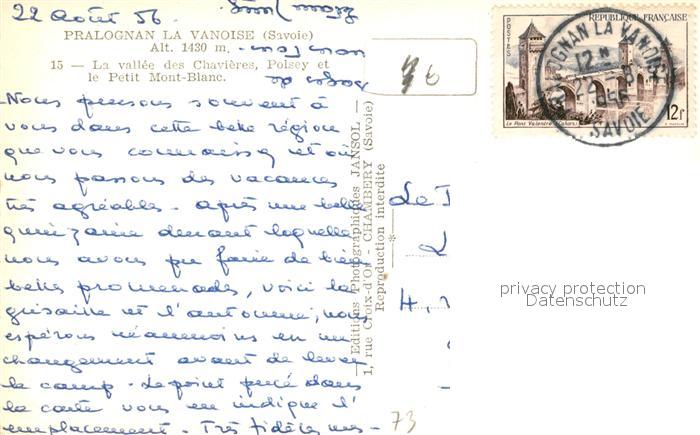 22 Août 56
PRALOGNAN LA VANOISE (Savoie)
Alt. 1430 m.
15 — La vallée des Chavières, Polsey et
le Petit Mont-Blanc.
Nous pensons souvent à
vous dans cette belle région
que vous connaissez et où
nous passons des vacances
très agréables. Après une belle
quinzaine durant laquelle
nous avons pu faire de bien
belles promenades, voici la
grisaille et l'automne, nous
espérons néanmoins en un
changement avant de lever
le camp. Le point percé dans
la carte vous en indique l'
emplacement. Très fidèles
— Editions Photographiques JANSOL —
1, rue Croix-d'Or - CHAMBERY (Savoie)
Reproduction interdite
POSTES
REPUBLIQUE FRANÇAISE
Le Pont Valentré (Cahors)
12f
PRALOGNAN LA VANOISE
12 H
22 -8
1956
SAVOIE
privacy protection
Datenschutz
73